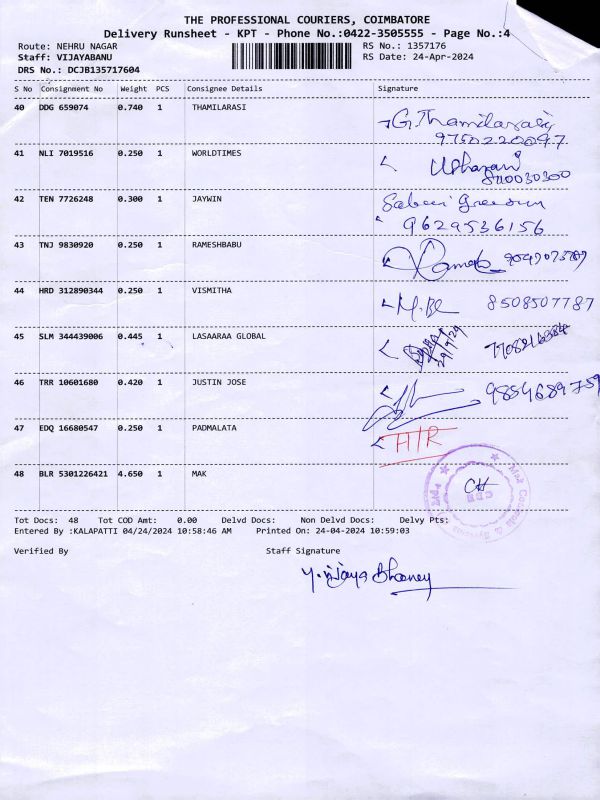 THE PROFESSIONAL COURIERS, COIMBATORE
Delivery Runsheet - KPT - Phone No.:0422-3505555 - Page No.:4
Route: NEHRU NAGAR RS No.: 1357176
Staff: VIJAYABANU RS Date: 24-Apr-2024
DRS No.: DCJB135717604
S No Consignment No Weight PCS Consignee Details Signature
40 DDG 659074 0.740 1 THAMILARASI G.Thamilarasi
9750220097
41 NLI 7019516 0.250 1 WORLDTIMES
42 TEN 7726248 0.300 1 JAYWIN
9629536156
43 TNJ 9830920 0.250 1 RAMESHBABU
44 HRD 312890344 0.250 1 VISMITHA 8508507787
45 SLM 344439006 0.445 1 LASAARAA GLOBAL
46 TRR 10601680 0.420 1 JUSTIN JOSE
47 EDQ 16680547 0.250 1 PADMALATA
48 BLR 5301226421 4.650 1 MAK
Tot Docs: 48 Tot COD Amt: 0.00 Delvd Docs: Non Delvd Docs: Delvy Pts:
Entered By :KALAPATTI 04/24/2024 10:58:46 AM Printed On: 24-04-2024 10:59:03
Verified By Staff Signature